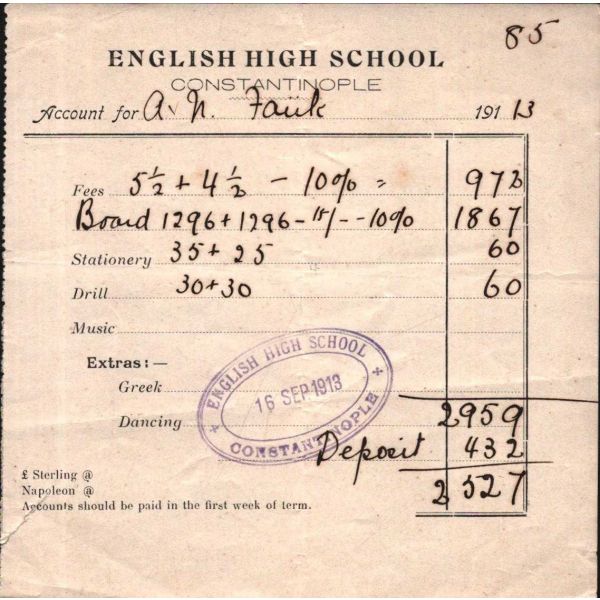 85
ENGLISH HIGH SCHOOL
CONSTANTINOPLE
Account for A. N. Faik 191 13
Fees 5½ + 4½ - 10% = 972
Board 1296 + 1296 - 15/- - 10% 1867
Stationery 35 + 25 60
Drill 30 + 30 60
Music
Extras:—
Greek
Dancing 2959
Deposit 432
2527
ENGLISH HIGH SCHOOL
16 SEP 1913
CONSTANTINOPLE
£ Sterling @
Napoleon @
Accounts should be paid in the first week of term.